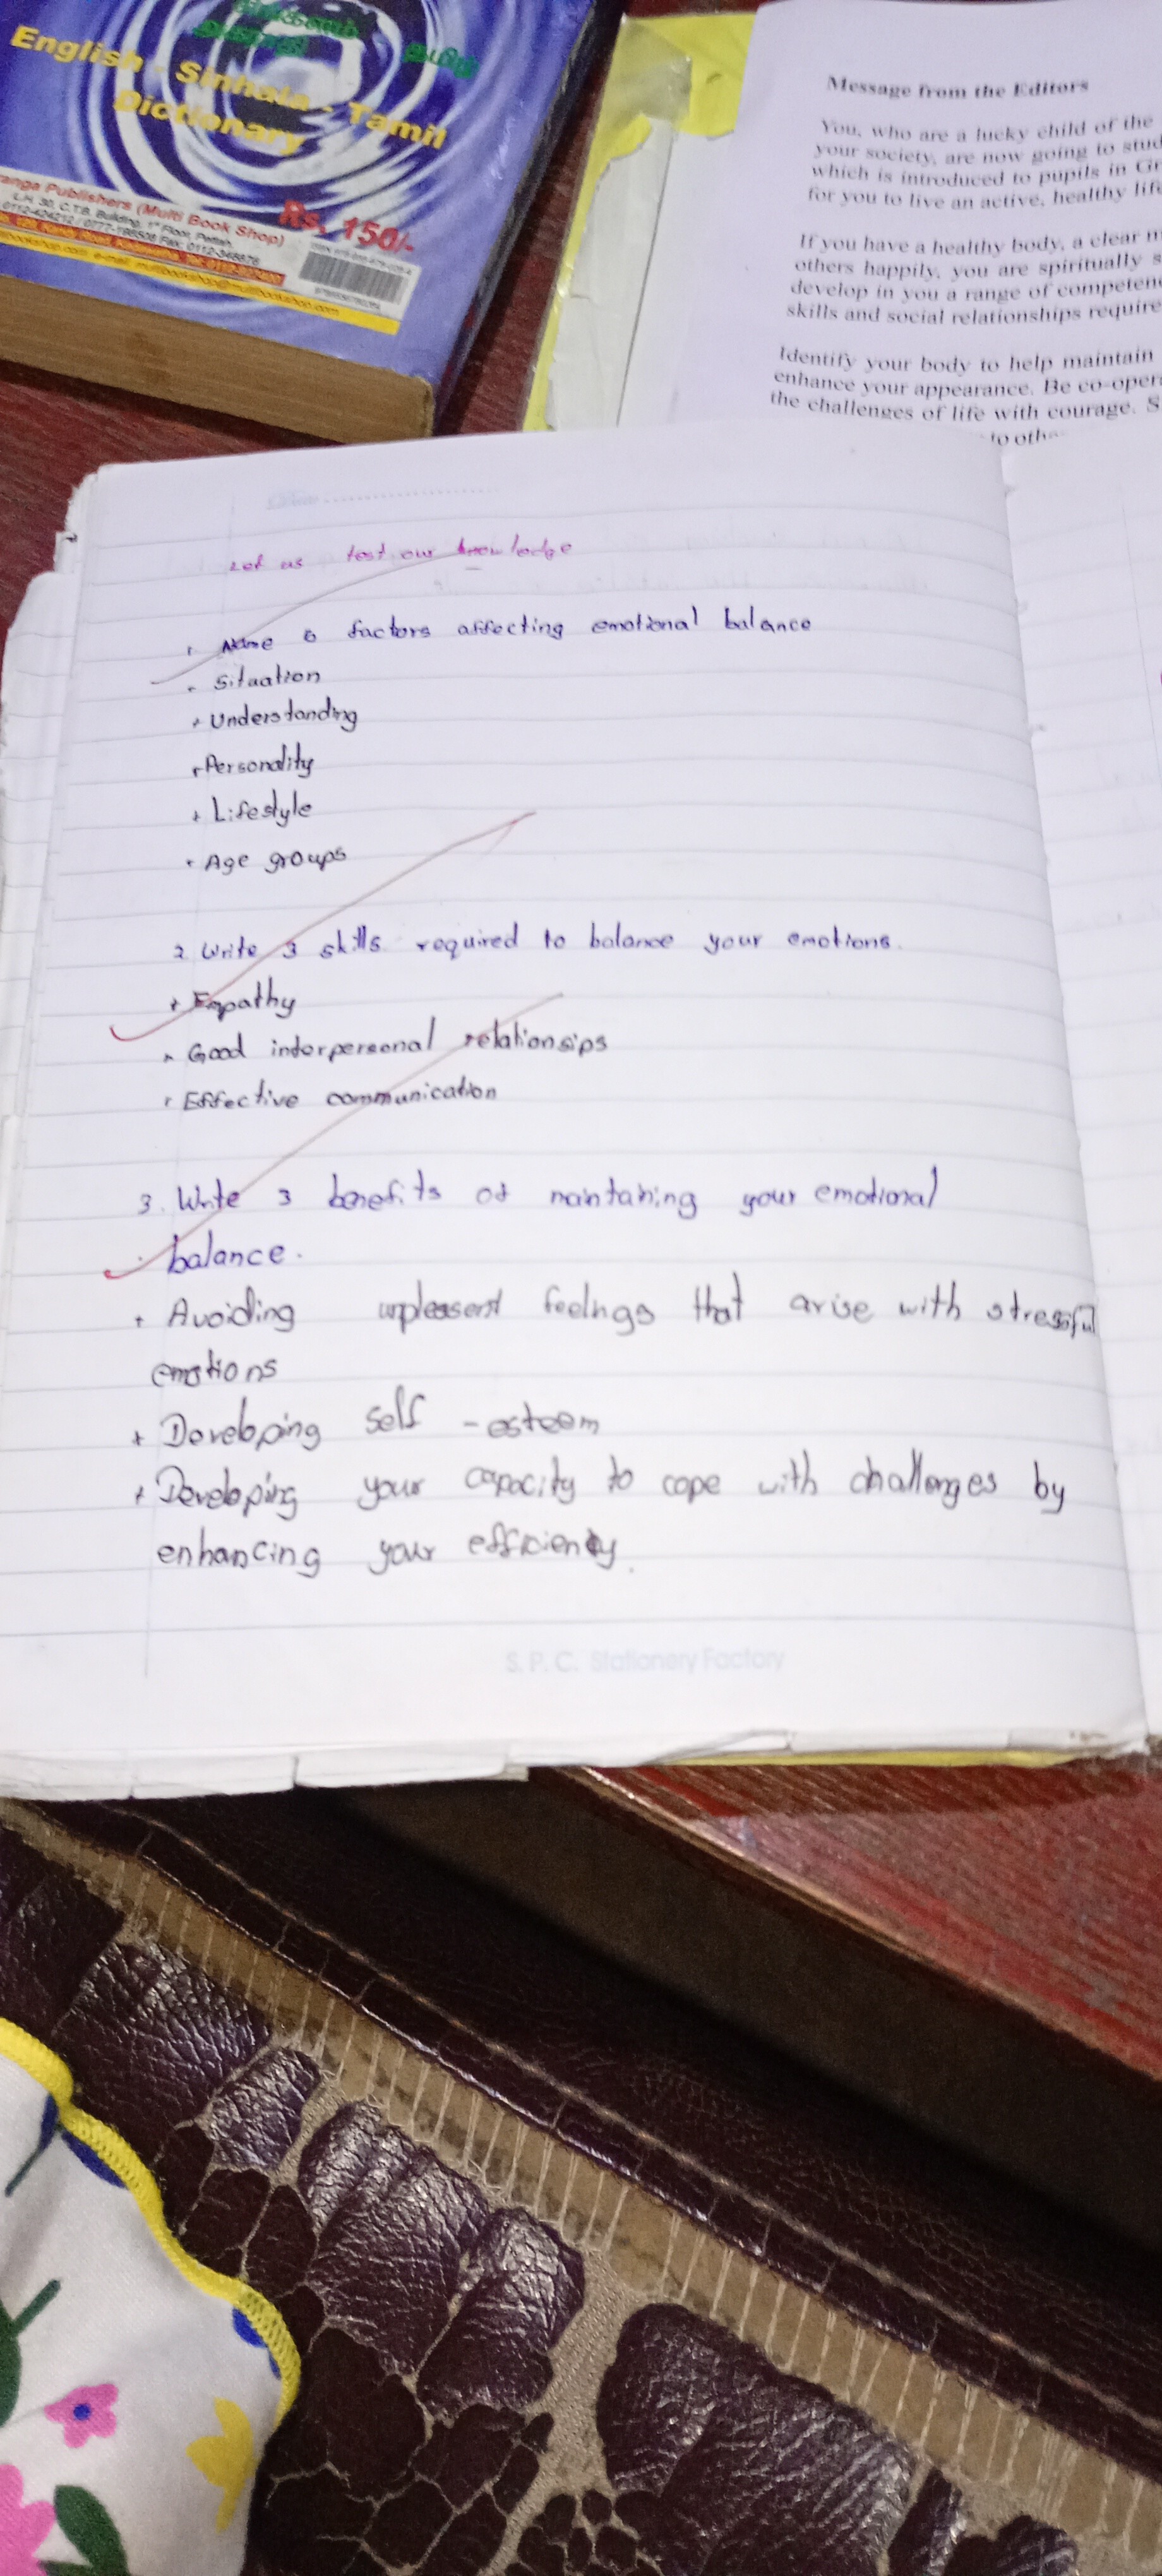 தமிழ்
English - Sinhala - Tamil
Dictionary
Publishers (Multi Book Shop)
Rs. 150/-
Message from the Editors
You, who are a lucky child of the
your society, are now going to stud
which is introduced to pupils in Gr
for you to live an active, healthy life
If you have a healthy body, a clear m
others happily, you are spiritually s
develop in you a range of competen
skills and social relationships require
Identify your body to help maintain
enhance your appearance. Be co-oper
the challenges of life with courage. S
to othe
Let us test our knowledge
1 Name 5 factors affecting emotional balance
Situation
Understanding
Personality
Lifestyle
Age groups
2 Write 3 skills required to balance your emotions.
Empathy
Good interpersonal relationsips
Effective communication
3. Write 3 benefits of maintaining your emotional
balance.
Avoiding unpleasent feelings that arise with stressful
emotions
Developing self - esteem
Developing your capacity to cope with challenges by
enhancing your efficiency.
S. P. C. Stationery Factory